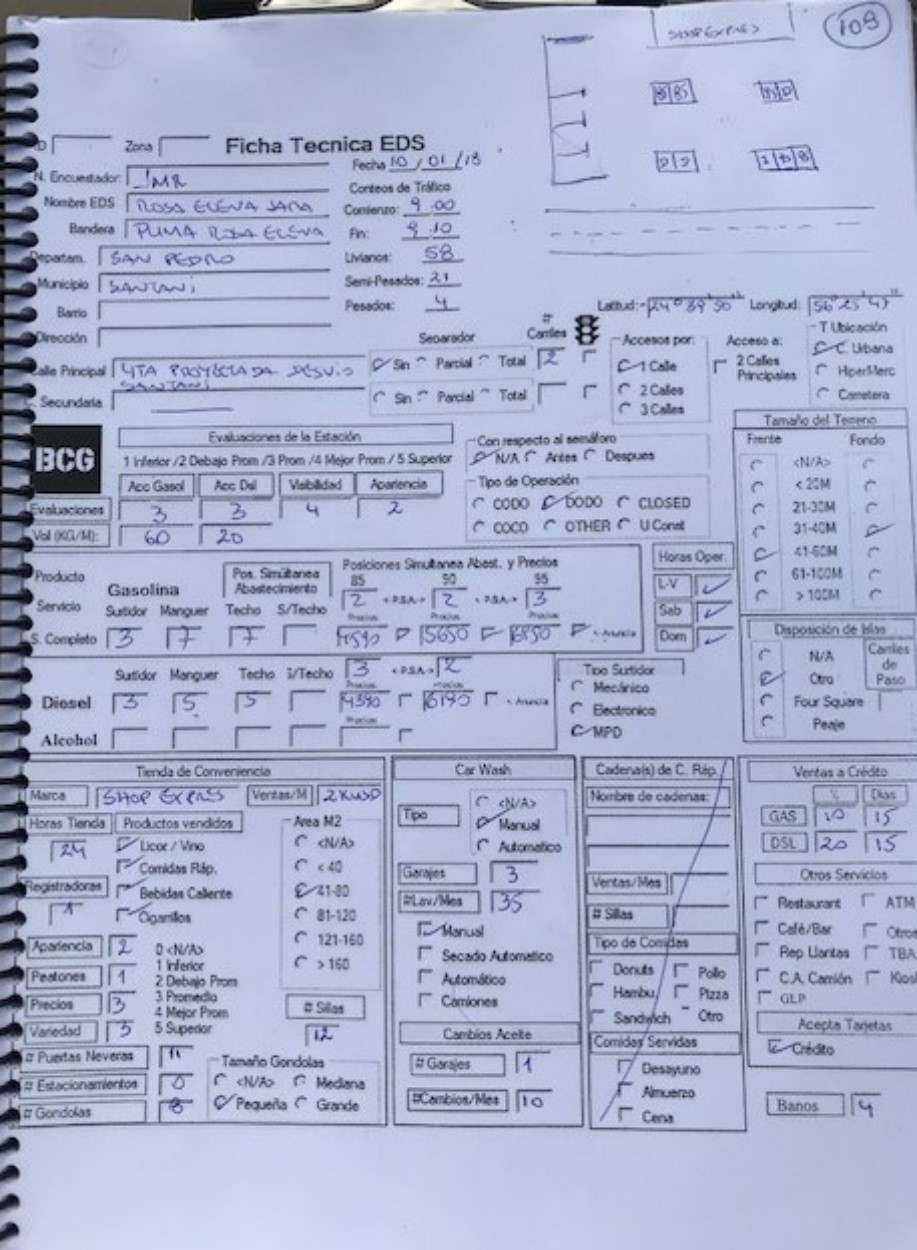 SHOP EXPRES
109
Zona
Ficha Tecnica EDS
Fecha 10 / 01 / 18
N. Encuestador: JMR
Conteos de Tráfico
Nombre EDS ROSA ELENA JARA
Comienzo: 9 00
Bandera PUMA ROSA ELENA
Fin: 9 10
Departam. SAN PEDRO
Livianos: 58
Municipio SANTANI
Semi-Pesados: 21
Barrio
Pesados: 4
Latitud: -24° 39' 50" Longitud: 56° 25' 47"
Dirección
Separador
# Carriles
Accesos por:
Acceso a:
T Ubicación
Calle Principal YTA PROYECTADA DESVIO SANTANI
Sin Parcial Total 2
1 Calle
2 Calles
3 Calles
2 Calles Principales
C. Urbana
HiperMerc
Carretera
C. Secundaria
Sin Parcial Total
BCG
Evaluaciones de la Estación
1 Inferior /2 Debajo Prom /3 Prom /4 Mejor Prom / 5 Superior
Acc Gasol Acc Dsl Visibilidad Apariencia
Evaluaciones 3 3 4 2
Vol (KG/M): 60 20
Con respecto al semáforo
N/A Antes Despues
Tipo de Operación
CODO DODO CLOSED
COCO OTHER U Const
Tamaño del Terreno
Frente Fondo
<N/A>
< 20M
21-30M
31-40M
41-60M
61-100M
> 100M
Producto
Servicio
Gasolina
Pos. Simültanea Abastecimiento
Posiciones Simultanea Abast. y Precios
85 90 95
2 <-P.S.A.-> 2 <-P.S.A.-> 3
Surtidor Manguer Techo S/Techo
Precios Precios Precios
S. Completo 3 7 7 4590 5650 6850 <-Anuncia
Horas Oper.
L-V
Sab
Dom
Surtidor Manguer Techo S/Techo 3 <-P.S.A.-> 2
Precios Precios
Diesel 3 5 5 4390 6190 <-Anuncia
Precios
Alcohol
Tipo Surtidor
Mecánico
Electronico
MPD
Disposición de Islas
N/A
Otro
Four Square
Peaje
Carriles de Paso
Tienda de Conveniencia
Marca SHOP EXPRES Ventas/M 2KUSD
Horas Tienda Productos vendidos
24
Licor / Vino
Comidas Ráp.
Bebidas Caliente
Cigarillos
Registradoras
1
Area M2
<N/A>
< 40
41-80
81-120
121-160
> 160
Apariencia 2
Peatones 1
Precios 3
Variedad 3
0 <N/A>
1 Inferior
2 Debajo Prom
3 Promedio
4 Mejor Prom
5 Superior
# Sillas
12
# Puertas Neveras 11
# Estacionamientos 0
# Gondolas 8
Tamaño Gondolas
<N/A> Mediana
Pequeña Grande
Car Wash
Tipo
<N/A>
Manual
Automatico
Garajes 3
#Lav/Mes 35
Manual
Secado Automatico
Automático
Camiones
Cambios Aceite
# Garajes 1
#Cambios/Mes 10
Cadena(s) de C. Ráp.
Nombre de cadenas:
Ventas/Mes
# Sillas
Tipo de Comidas
Donuts Pollo
Hambu. Pizza
Sandwich Otro
Comidas Servidas
Desayuno
Almuerzo
Cena
Ventas a Crédito
% Dias
GAS 10 15
DSL 20 15
Otros Servicios
Restaurant ATM
Café/Bar
Rep Llantas
C.A. Camión
GLP
Acepta Tarjetas
Crédito
Banos 4